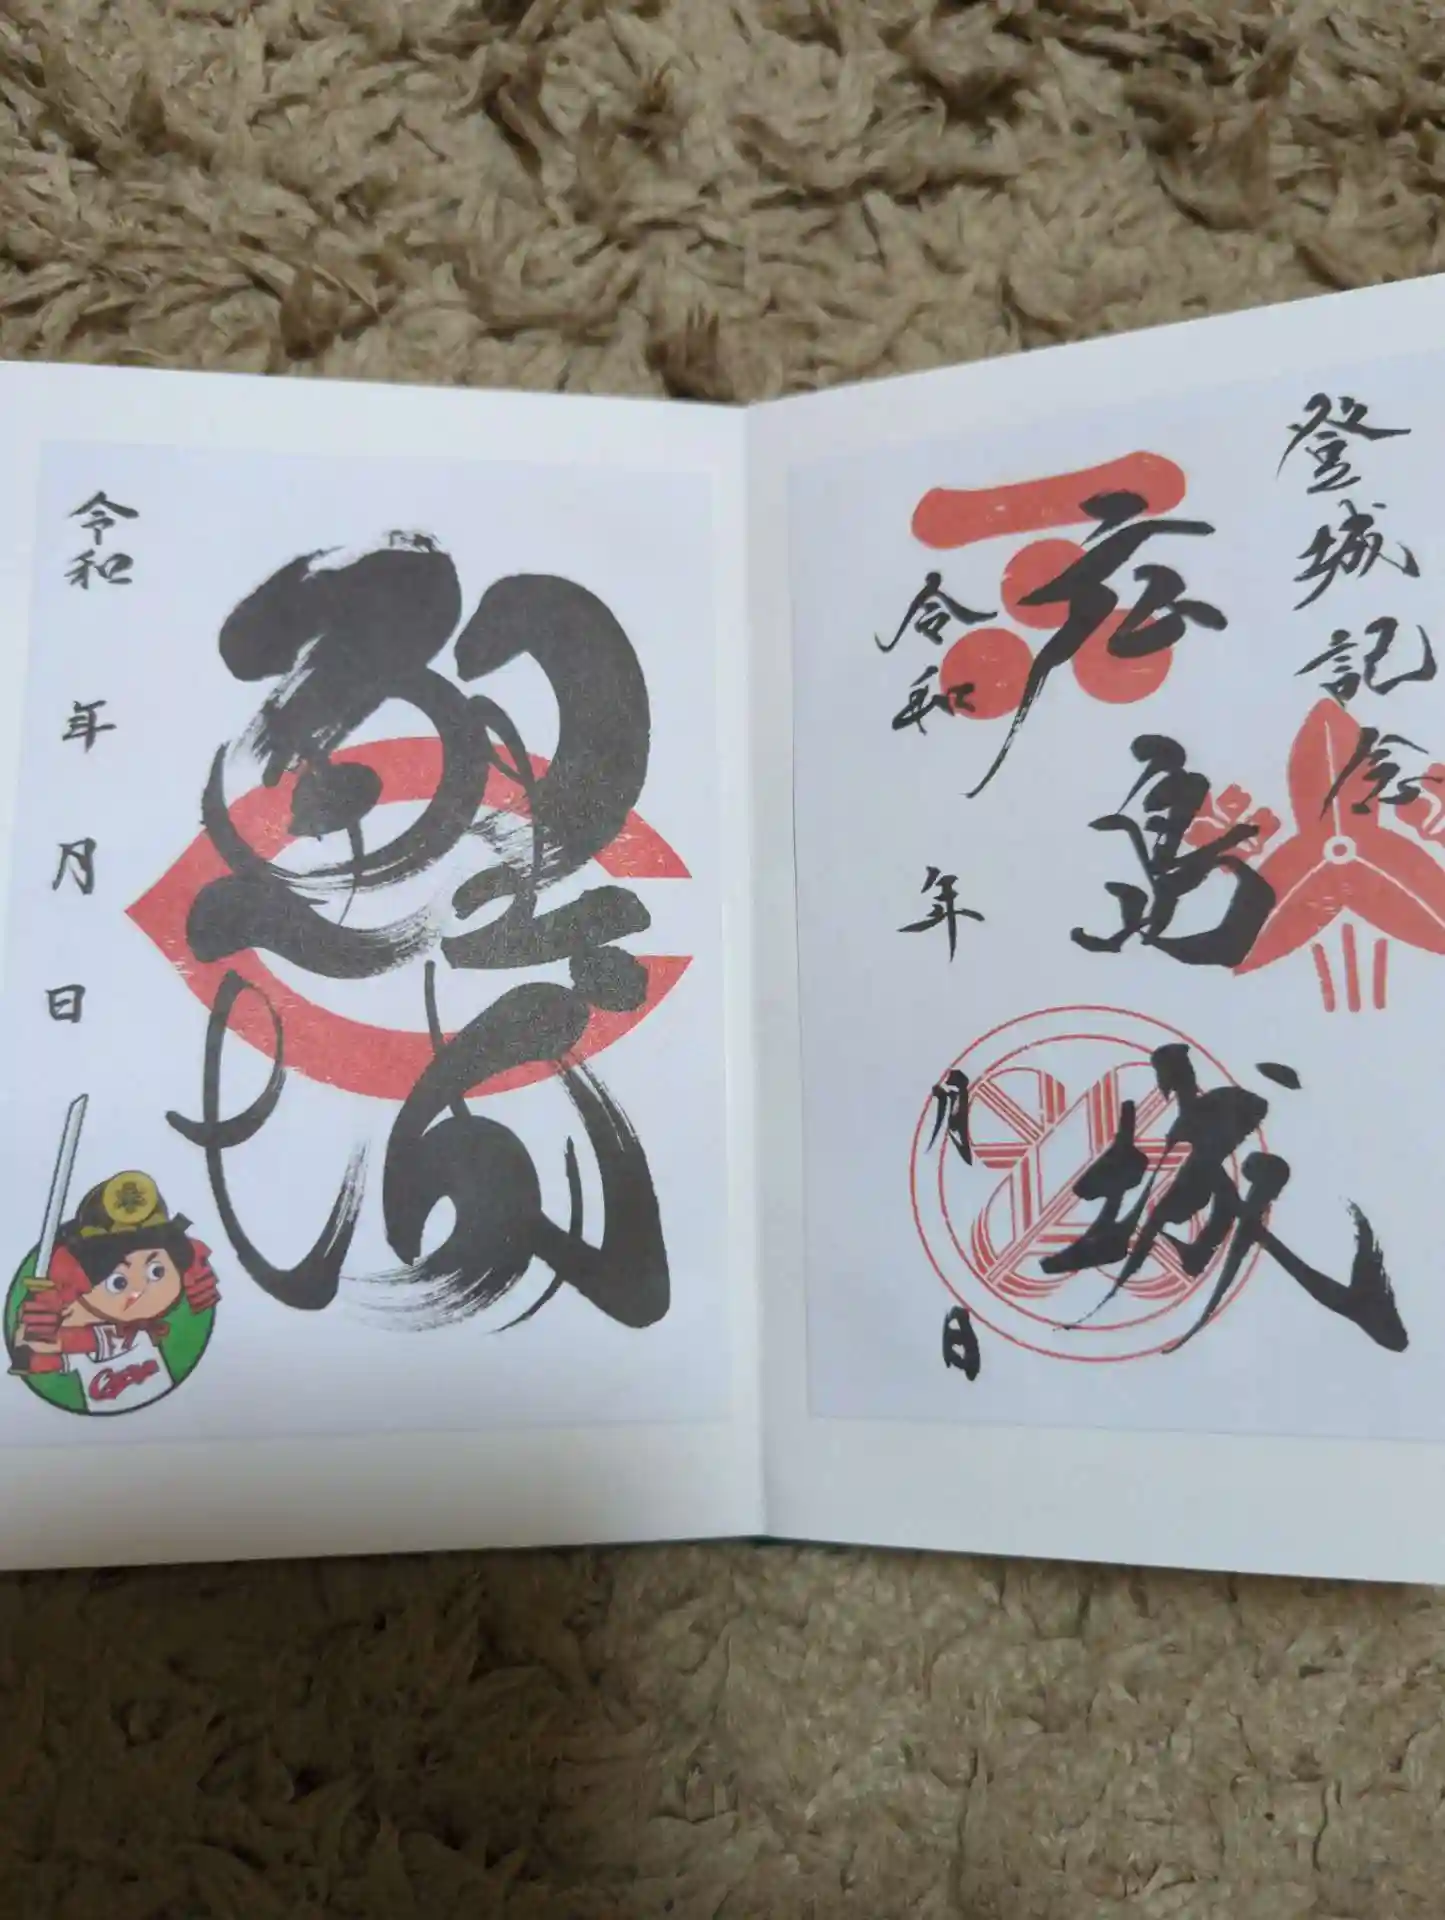 登城記念
広島城
令和 年 月 日
鯉城
令和 年 月 日
Carp